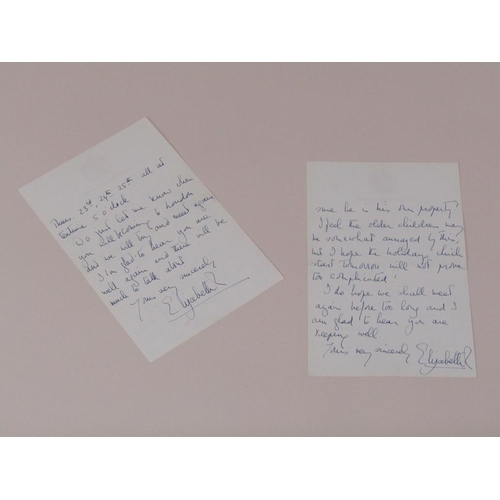 Thurs 23rd 24th 25th all at
5 o'clock
Do just let me know when
you will be coming to London
and we will try and meet again
I'm glad to hear you are
well again and there will be
much to talk about
Yours very sincerely
Elizabeth R
sure he is his own property
I feel the older children may
be somewhat annoyed by this,
but I hope the holidays which
start tomorrow will not prove
too complicated!
I do hope we shall meet
again before too long and I
am glad to hear you are
keeping well.
Yours very sincerely
Elizabeth R